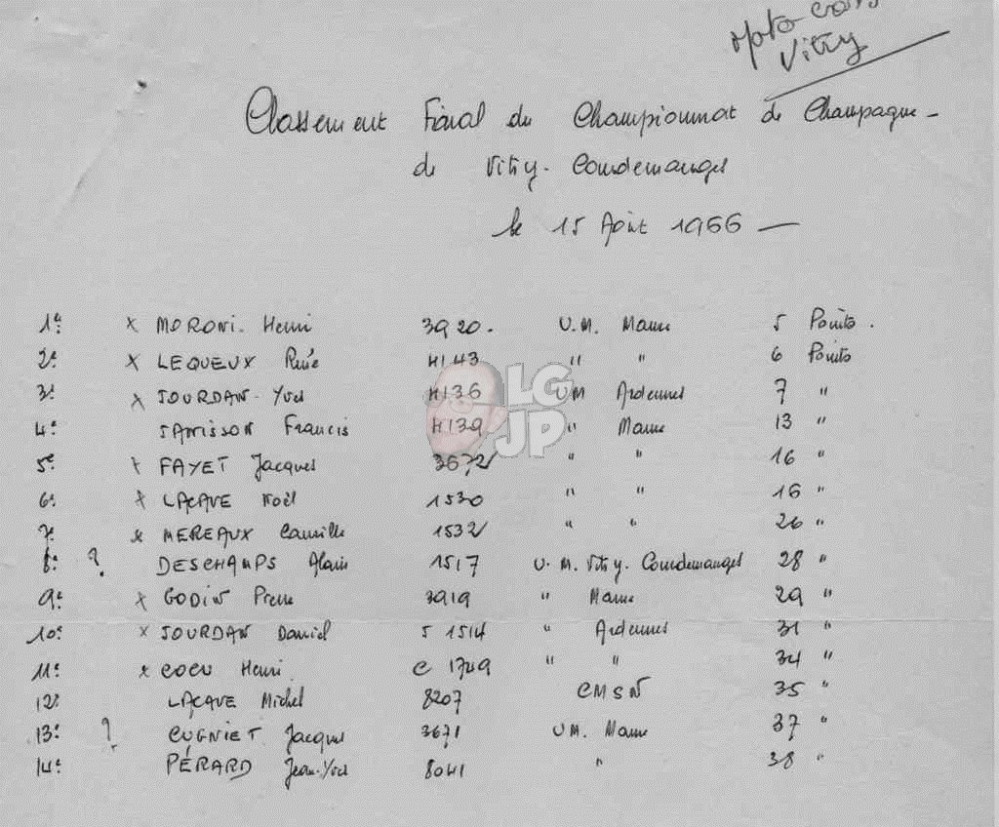 Moto cross
Vitry
Classement Final du Championnat de Champagne -
de Vitry. Courdemanges
le 15 Août 1966 —
1e: x MORONI. Henri 3920. U.M. Marne 5 Points.
2e x LEQUEUX René H143 " " 6 Points
3e x JOURDAN - Yves H136 UM Ardennes 7 "
4e: SAMISSON Francis H139 " Marne 13 "
5e x FAYET Jacques 3672 " " 16 "
6e: x LACAVE Noël 1530 " " 16 "
7e x MEREAUX Camille 1532 " " 26 "
8e: ? DESCHAMPS Alain 1517 U. M. Vitry. Courdemanges 28 "
9e: x GODIN Pierre 3919 " Marne 29 "
10e: x JOURDAN Daniel 5 1514 " Ardennes 31 "
11e: x COCU Henri. C 1749 " " 34 "
12e LACAVE Michel 8207 CMSN 35 "
13e: ? CUGNIET Jacques 3671 UM. Marne 37 "
14e: PÉRARD Jean-Yves 8041 " 38 "
LG
JP